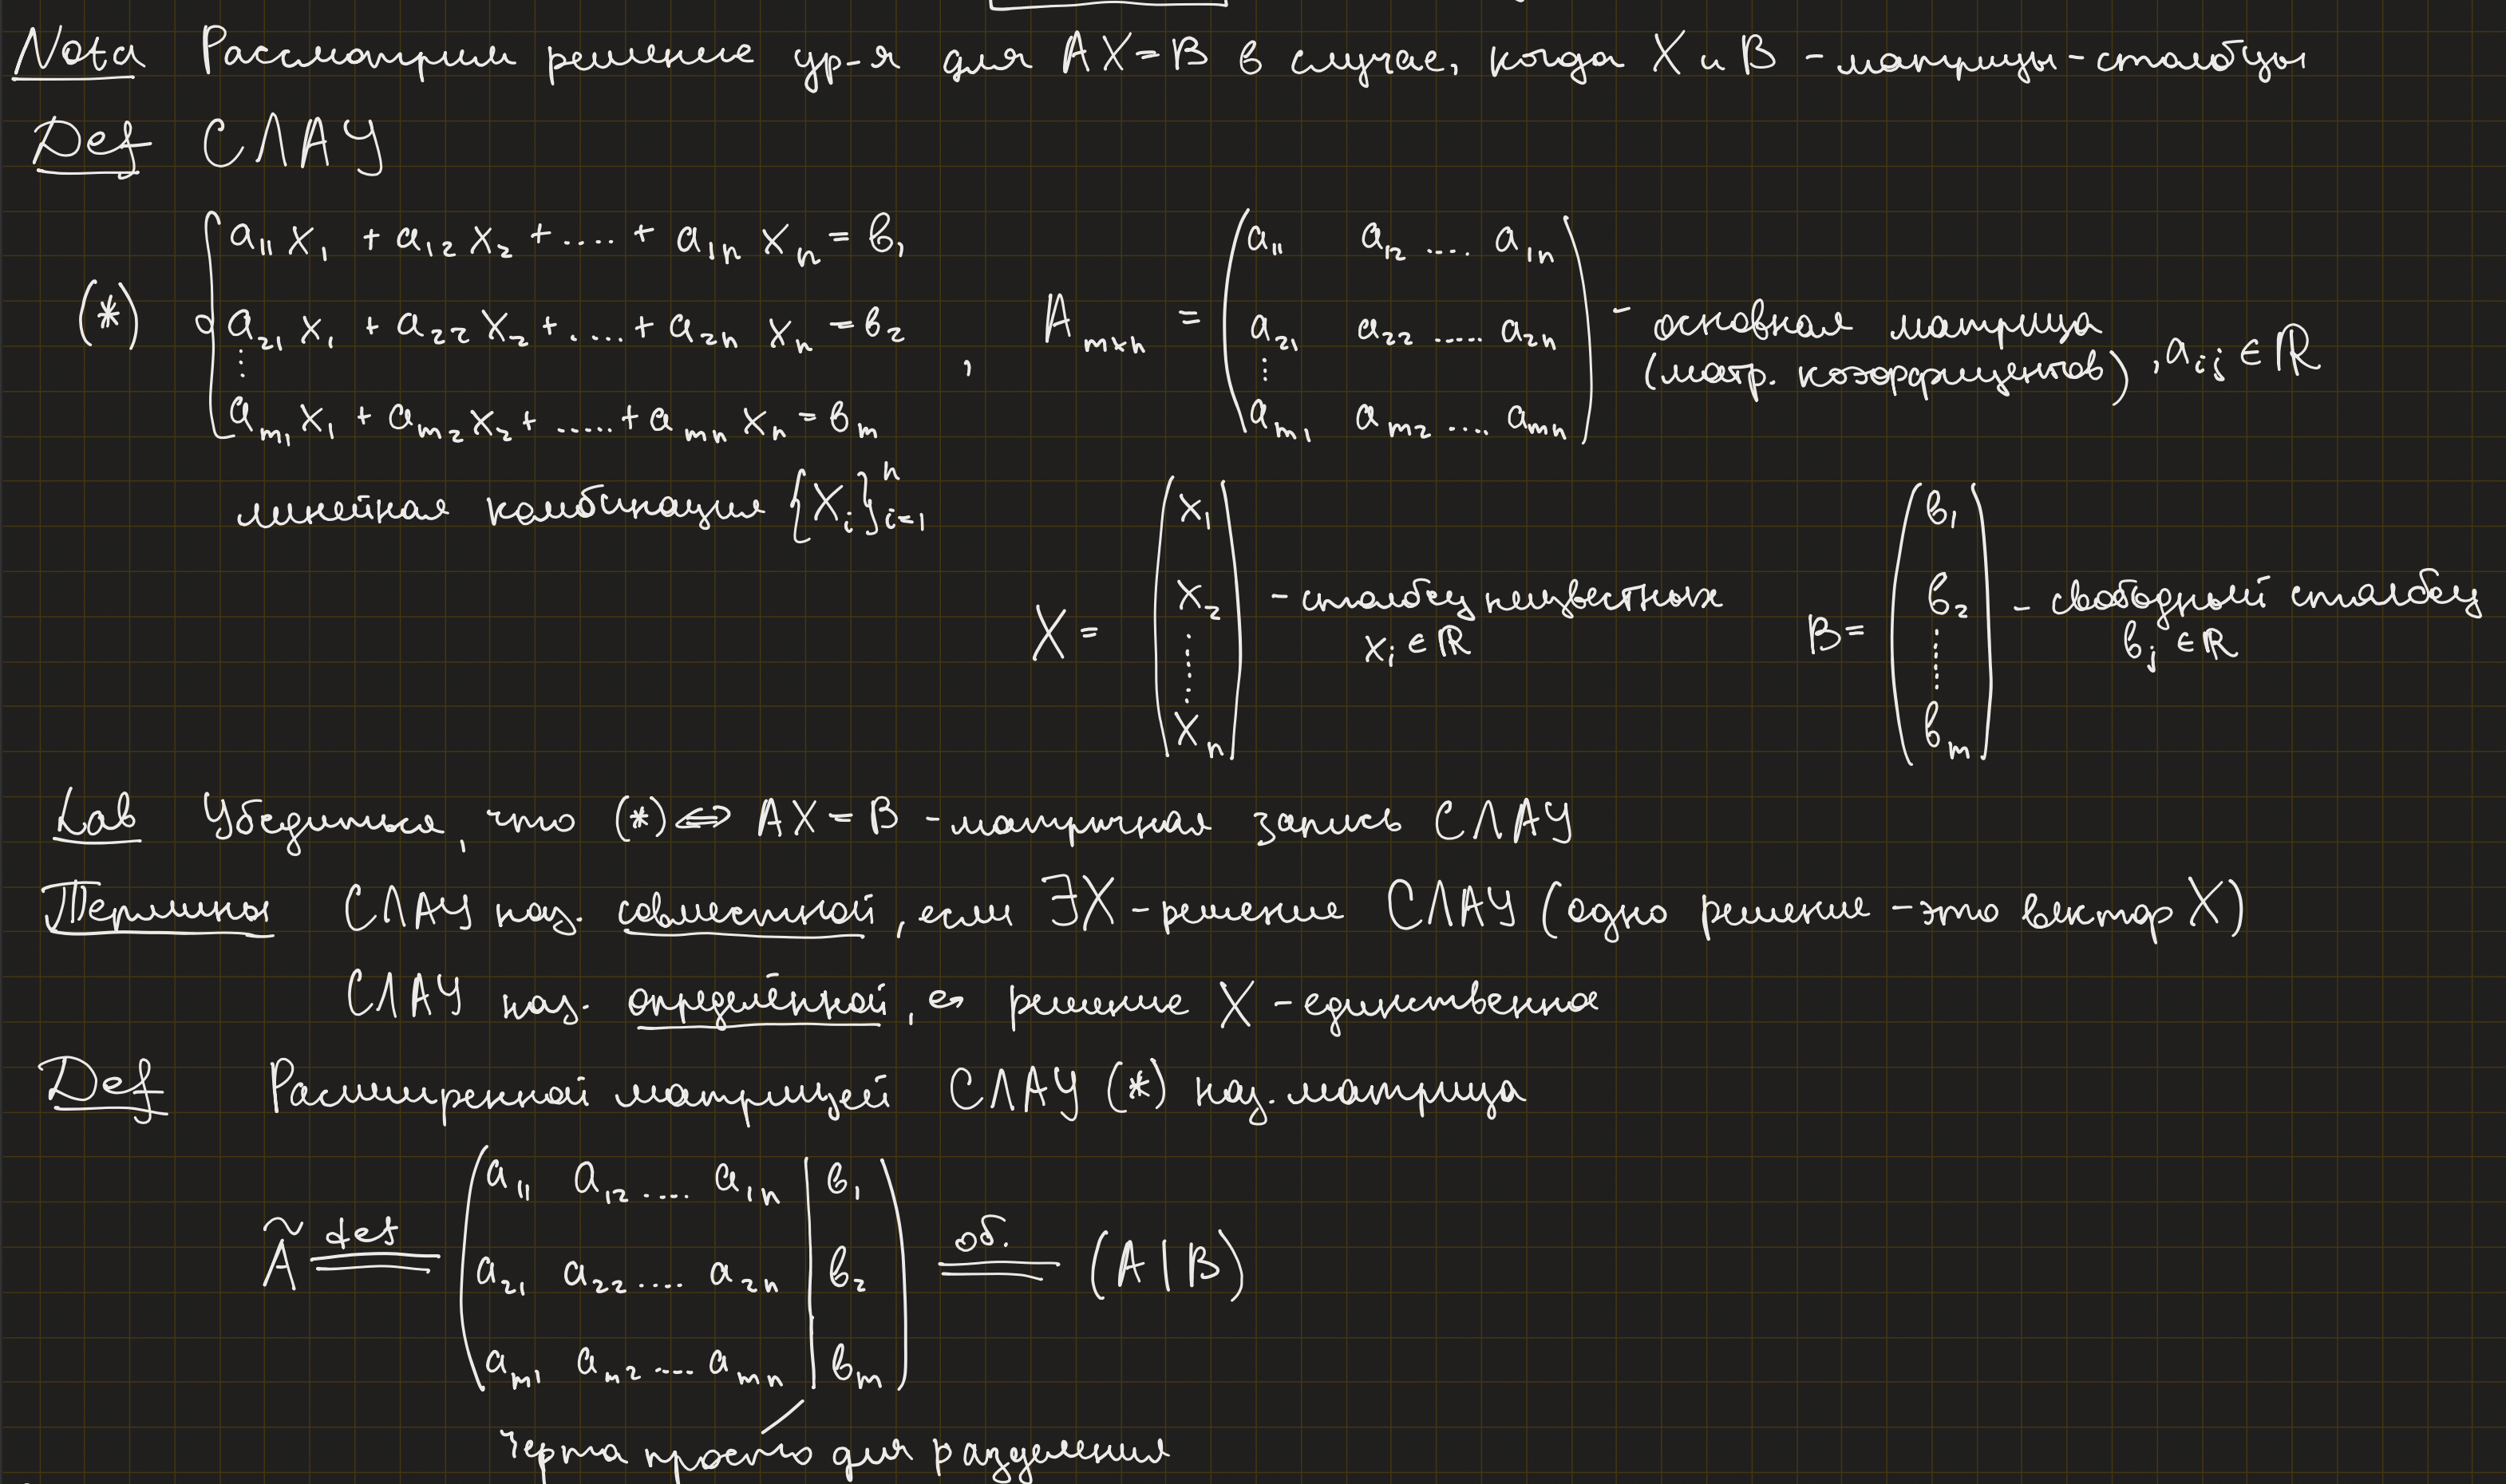 Nota Рассмотрим решение ур-я для AX=B в случае, когда X и B - матрицы-столбцы
Def СЛАУ
a₁₁x₁ + a₁₂x₂ + .... + a₁ₙxₙ = b₁
(*) a₂₁x₁ + a₂₂x₂ + .... + a₂ₙxₙ = b₂
⋮
aₘ₁x₁ + aₘ₂x₂ + ..... + aₘₙxₙ = bₘ
, Aₘₓₙ =
a₁₁ a₁₂ .... a₁ₙ
a₂₁ a₂₂ ..... a₂ₙ
⋮
aₘ₁ aₘ₂ .... aₘₙ
- основная матрица
(матр. коэффициентов), aᵢⱼ ∈ ℝ
линейная комбинация {Xᵢ}ⁿᵢ₌₁
X =
x₁
x₂
⋮
xₙ
- столбец неизвестных
xᵢ ∈ ℝ
B =
b₁
b₂
⋮
bₘ
- свободный столбец
bⱼ ∈ ℝ
Lab Убедиться, что (*) ⟺ AX = B - матричная запись СЛАУ
Термины СЛАУ наз. совместной, если ∃X - решение СЛАУ (одно решение - это вектор X)
СЛАУ наз. определённой, е> решение X - единственное
Def Расширенной матрицей СЛАУ (*) наз. матрица
Ã def
a₁₁ a₁₂ .... a₁ₙ | b₁
a₂₁ a₂₂ .... a₂ₙ | b₂
aₘ₁ aₘ₂ .... aₘₙ | bₘ
об. (A | B)
черта просто для разделения